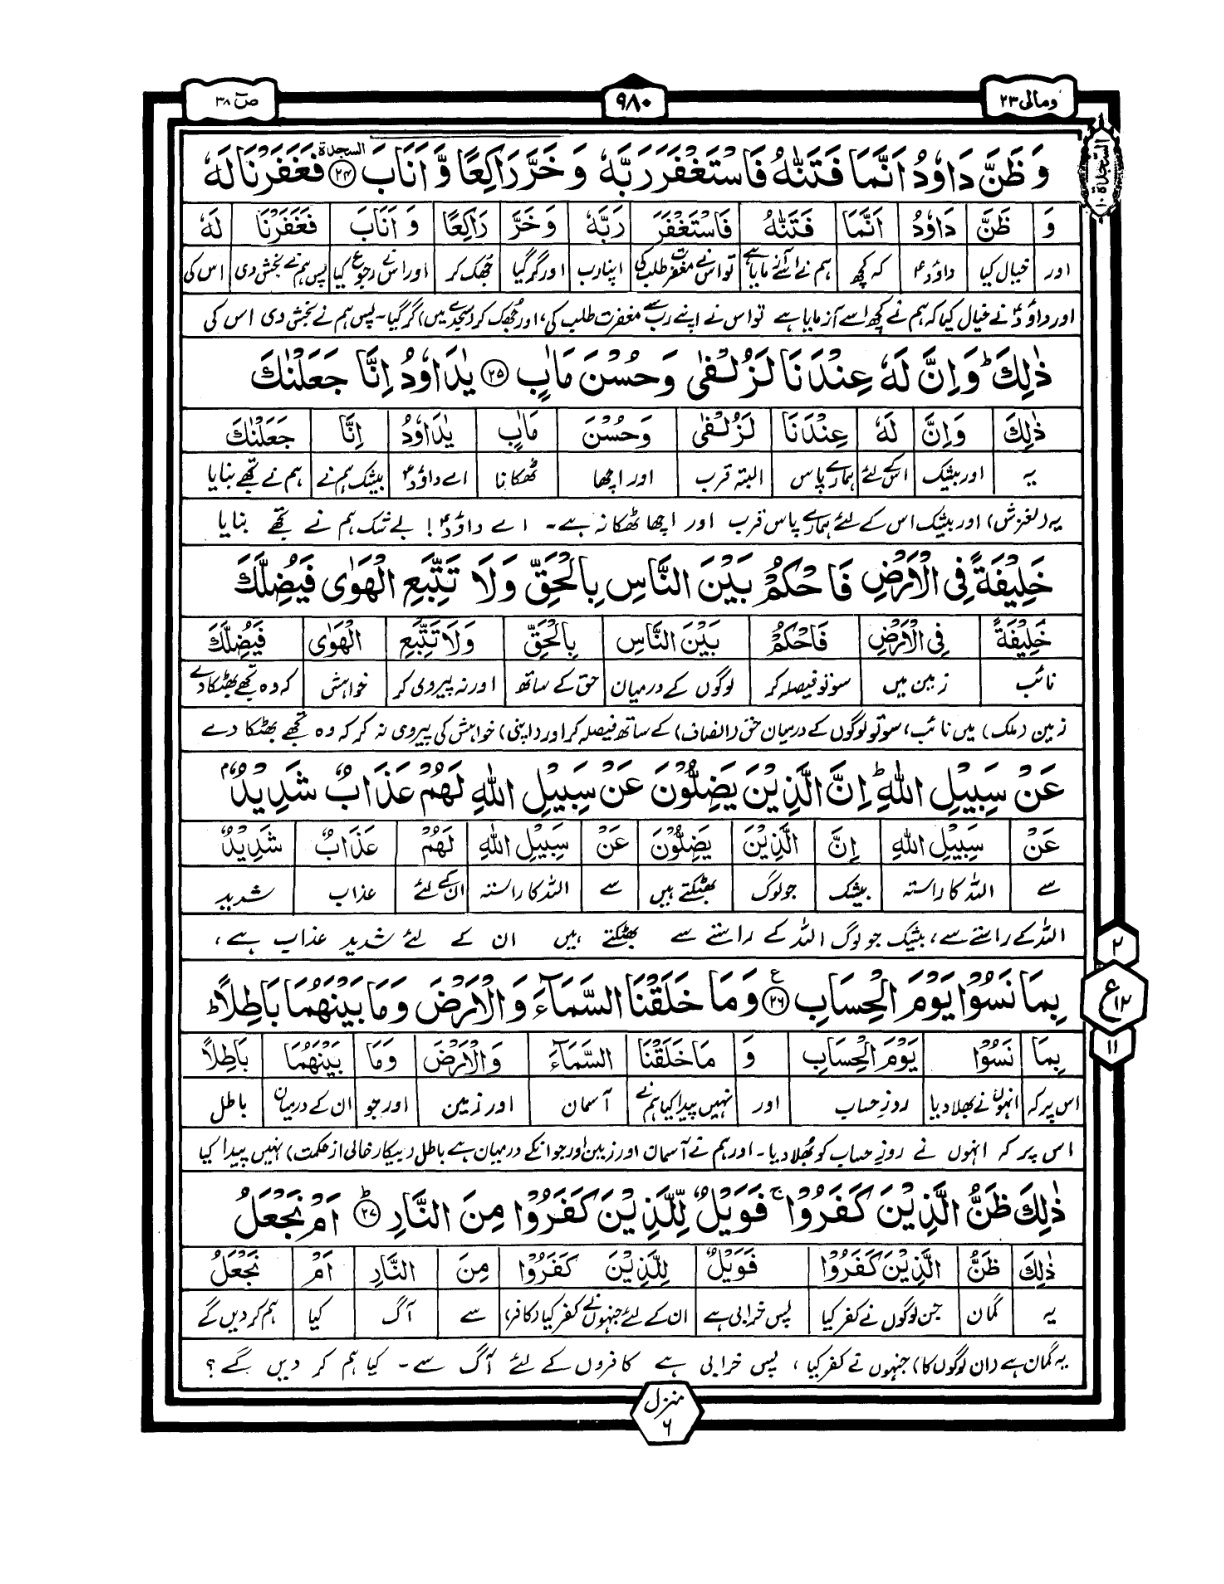 ومالی ۲۳
۹۸۰
ص ۳۸
السجدة ۱۰
وَظَنَّ دَاوٗدُ اَنَّمَا فَتَنّٰهُ فَاسْتَغْفَرَ رَبَّهٗ وَخَرَّ رَاكِعًا وَّاَنَابَ السجدة ۲۴ فَغَفَرْنَا لَهٗ
وَ ظَنَّ دَاوٗدُ اَنَّمَا فَتَنّٰهُ فَاسْتَغْفَرَ رَبَّهٗ وَخَرَّ رَاكِعًا وَاَنَابَ فَغَفَرْنَا لَهٗ
اور خیال کیا داؤدؑ کہ کچھ ہم نے اسے آزمایا ہے تو اس نے مغفرت طلب کی اپنا رب اور گر گیا جھک کر اور اس نے رجوع کیا پس ہم نے بخش دی اس کی
اور داؤدؑ نے خیال کیا کہ ہم نے کچھ اسے آزمایا ہے تو اس نے اپنے رب سے مغفرت طلب کی، اور جھک کر (سجدے میں) گر گیا۔ پس ہم نے بخش دی اس کی
ذٰلِكَ ؕ وَاِنَّ لَهٗ عِنْدَنَا لَزُلْفٰى وَحُسْنَ مَاٰبٍ ۲۵ يٰدَاوٗدُ اِنَّا جَعَلْنٰكَ
ذٰلِكَ وَاِنَّ لَهٗ عِنْدَنَا لَزُلْفٰى وَحُسْنَ مَاٰبٍ يٰدَاوٗدُ اِنَّا جَعَلْنٰكَ
یہ اور بیشک اس کے لئے ہمارے پاس البتہ قرب اور اچھا ٹھکانا اے داؤدؑ بیشک ہم نے ہم نے تجھے بنایا
یہ (لغزش) اور بیشک اس کے لئے ہمارے پاس قرب اور اچھا ٹھکانہ ہے۔ اے داؤدؑ! بے شک ہم نے تجھے بنایا
خَلِيْفَةً فِى الْاَرْضِ فَاحْكُمْ بَيْنَ النَّاسِ بِالْحَقِّ وَلَا تَتَّبِعِ الْهَوٰى فَيُضِلَّكَ
خَلِيْفَةً فِى الْاَرْضِ فَاحْكُمْ بَيْنَ النَّاسِ بِالْحَقِّ وَلَا تَتَّبِعِ الْهَوٰى فَيُضِلَّكَ
نائب زمین میں سو تو فیصلہ کر لوگوں کے درمیان حق کے ساتھ اور نہ پیروی کر خواہش کہ وہ تجھے بھٹکا دے
زمین (ملک) میں نائب، سو تو لوگوں کے درمیان حق (انصاف) کے ساتھ فیصلہ کر اور (اپنی) خواہش کی پیروی نہ کر کہ وہ تجھے بھٹکا دے
عَنْ سَبِيْلِ اللّٰهِ ؕ اِنَّ الَّذِيْنَ يَضِلُّوْنَ عَنْ سَبِيْلِ اللّٰهِ لَهُمْ عَذَابٌ شَدِيْدٌۢ
عَنْ سَبِيْلِ اللّٰهِ اِنَّ الَّذِيْنَ يَضِلُّوْنَ عَنْ سَبِيْلِ اللّٰهِ لَهُمْ عَذَابٌ شَدِيْدٌ
سے اللہ کا راستہ بیشک جو لوگ بھٹکتے ہیں سے اللہ کا راستہ ان کے لئے عذاب شدید
اللہ کے راستے سے، بیشک جو لوگ اللہ کے راستے سے بھٹکتے ہیں ان کے لئے شدید عذاب ہے،
بِمَا نَسُوْا يَوْمَ الْحِسَابِ ع ۲۶ وَمَا خَلَقْنَا السَّمَآءَ وَالْاَرْضَ وَمَا بَيْنَهُمَا بَاطِلًا ؕ
۲
ع ۱۲
۱۱
بِمَا نَسُوْا يَوْمَ الْحِسَابِ وَ مَا خَلَقْنَا السَّمَآءَ وَالْاَرْضَ وَمَا بَيْنَهُمَا بَاطِلًا
اس پر کہ انہوں نے بھلا دیا روز حساب اور نہیں پیدا کیا ہم نے آسمان اور زمین اور جو ان کے درمیان باطل
اس پر کہ انہوں نے روز حساب کو بھلا دیا۔ اور ہم نے آسمان اور زمین اور جو انکے درمیان ہے باطل (بیکار خالی از حکمت) نہیں پیدا کیا
ذٰلِكَ ظَنُّ الَّذِيْنَ كَفَرُوْا ۚ فَوَيْلٌ لِّلَّذِيْنَ كَفَرُوْا مِنَ النَّارِ ؕ ۲۷ اَمْ نَجْعَلُ
ذٰلِكَ ظَنُّ الَّذِيْنَ كَفَرُوْا فَوَيْلٌ لِّلَّذِيْنَ كَفَرُوْا مِنَ النَّارِ اَمْ نَجْعَلُ
یہ گمان جن لوگوں نے کفر کیا پس خرابی ہے ان کے لئے جنہوں نے کفر کیا (کافر) سے آگ کیا ہم کر دیں گے
یہ گمان ہے (ان لوگوں کا) جنہوں نے کفر کیا، پس خرابی ہے کافروں کے لئے آگ سے۔ کیا ہم کر دیں گے؟
منزل ۶